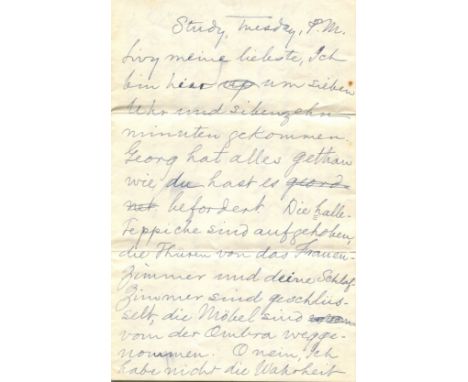 Study, Tuesday, P.M.
Livy meine liebste, Ich
bin hier um sieben
Uhr und sibenzehn
minuten gekommen.
Georg hat alles gethan
wie du hast es geord-
net befordert. Die Halle-
Teppiche sind aufgehoben,
die Thüren von das Frauen-
Zimmer und deine Schlaf
Zimmer sind geschlus-
selt, die Möbel sind
vom der Ombra wegge-
nommen. O nein, Ich
habe nicht die Wahrheit